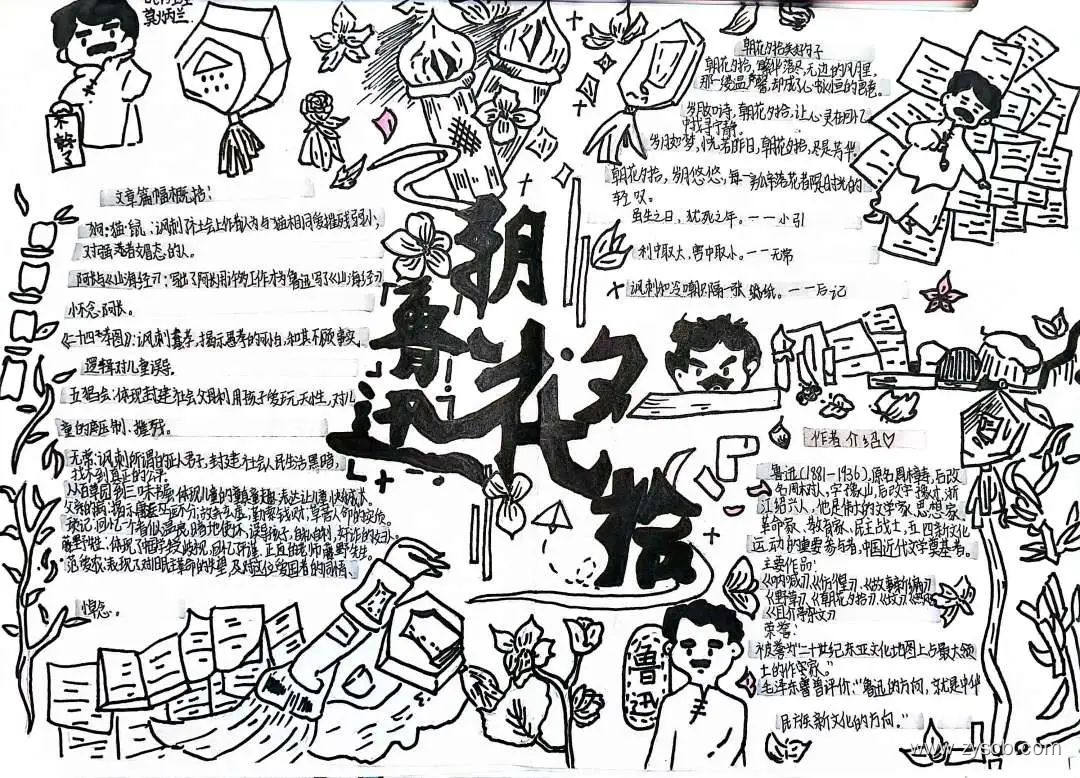 莫炳兰
文章篇幅概括：
狗·猫·鼠：讽刺了社会上作者认为与猫相同爱摧残弱小，
对强者媚态的人。
阿长与《山海经》：写了阿长用许多工作才为鲁迅写了《山海经》
怀念阿长。
《二十四孝图》：讽刺愚孝，揭示愚孝的可怕，和其不顾事实，
逻辑对儿童误导。
五猖会：体现封建社会父母利用孩子爱玩天性，对儿
童的压制、摧残。
无常：讽刺所谓的正人君子，封建社会人民生活黑暗，
找不到真正的公平。
从百草园到三味书屋：体现儿童的童真童趣，表达让儿童快乐成长。
父亲的病：揭示庸医巫医不分，故弄玄虚，勒索钱财，草菅人命的实质。
琐记：回忆一个看似温暖，暗地使坏，误导孩子，自私自利，奸诈的妇人。
藤野先生：体现了中国学校的风，回忆不清，正直的老师藤野先生。
范爱农：表现了对旧民主革命的失望，及对这位爱国者的同情、
悼念。
鲁迅
朝花夕拾
朝花夕拾美好句子
朝花夕拾，繁华落尽，无边的风里，
那一缕温馨，却成了心中永恒的富卷。
岁月如诗，朝花夕拾，让心灵在回忆
中找寻宁静。
岁月如梦，恍若昨日，朝花夕拾，尽是芳华
朝花夕拾，岁月悠悠，每一
轻叹。
虽生之日，犹死之年。——小引
利中取大，害中取小。——无常
讽刺和冷嘲只隔一张 纸。——后记
作者介绍♡
鲁迅(1881-1936)，原名周樟寿，后改
名周树人，字豫山，后改字豫才，浙
江绍兴人，他是伟大的文学家、思想家、
革命家、教育家、民主战士，五四新文化
运动的重要参与者，中国近代文学奠基者。
主要作品：
《呐喊》《彷徨》《故事新编》
《野草》《朝花夕拾》《坟》
《且介亭杂文》
荣誉：
被誉为"二十世纪东亚文化地图上占最大领
土的作家。"
毛泽东曾评价："鲁迅的方向，就是中华
民族新文化的方向。"
鲁迅
www.zyscb.com